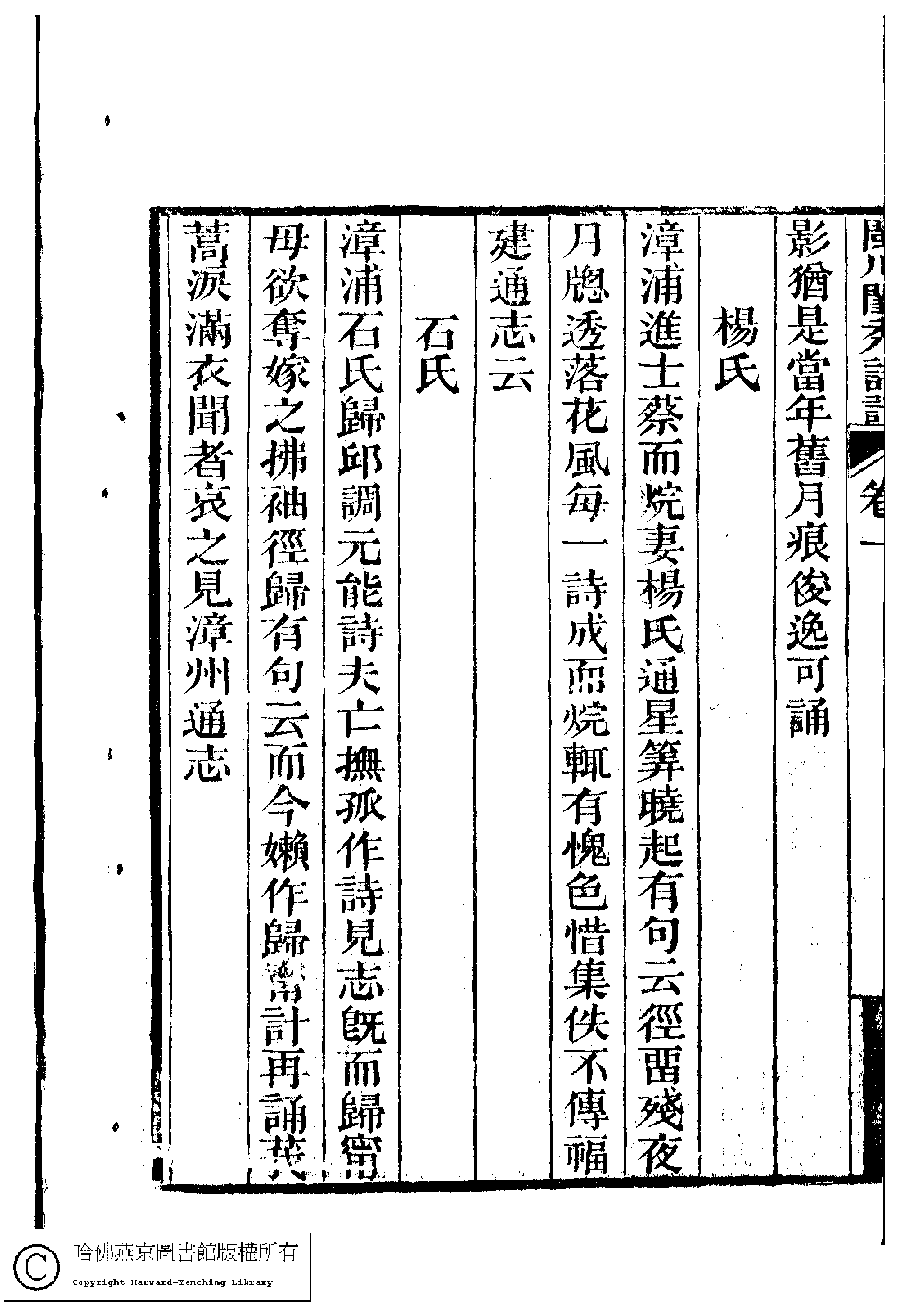 閩川閨秀詩話 卷一
影猶是當年舊月痕俊逸可誦
楊氏
漳浦進士蔡而烷妻楊氏通星算曉起有句云徑畱殘夜
月牕透落花風每一詩成而烷輒有愧色惜集佚不傳福
建通志云
石氏
漳浦石氏歸邱調元能詩夫亡撫孤作詩見志旣而歸甯
母欲奪嫁之拂袖徑歸有句云而今嬾作歸甯計再誦莪
蒿淚滿衣聞者哀之見漳州通志
哈佛燕京圖書館版權所有
Copyright Harvard-Yenching Library